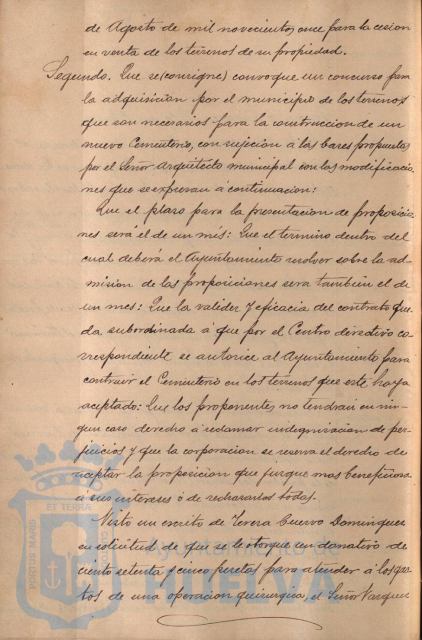 de Agosto de mil novecientos once para la cesion
en venta de los terrenos de su propiedad.
Segundo. Que se (consigne) convoque un concurso para
la adquisicion por el municipio de los terrenos
que son necesarios para la construccion de un
nuevo Cementerio, con sujecion á las bases propuestas
por el Señor Arquitecto municipal con las modificacio
nes que se expresan a continuacion:
Que el plazo para la presentacion de proposicio
nes será el de un mes: Que el termino dentro del
cual deberá el Ayuntamiento resolver sobre la ad-
mision de las proposiciones sera tambien el de
un mes: Que la validez y eficacia del contrato que-
da subordinada á que por el Centro directivo co-
rrespondiente se autorice al Ayuntamiento para
construir el Cementerio en los terrenos que este haya
aceptado: Que los proponentes no tendrán en nin-
gun caso derecho á reclamar indegnizacion de per-
juicios y que la corporacion se reserva el derecho de
aceptar la proposicion que juzgue mas beneficiosa
á sus intereses ó de rechazarlas todas.
Visto un escrito de Teresa Cuervo Dominguez
en solicitud de que se le otorgue un donativo de
ciento setenta y cinco pesetas para atender á los gas-
tos de una operacion quirurgica, el Señor Vazquez
PORTUS MARIS
ET TERRA
Ayuntamiento de
HUELVA